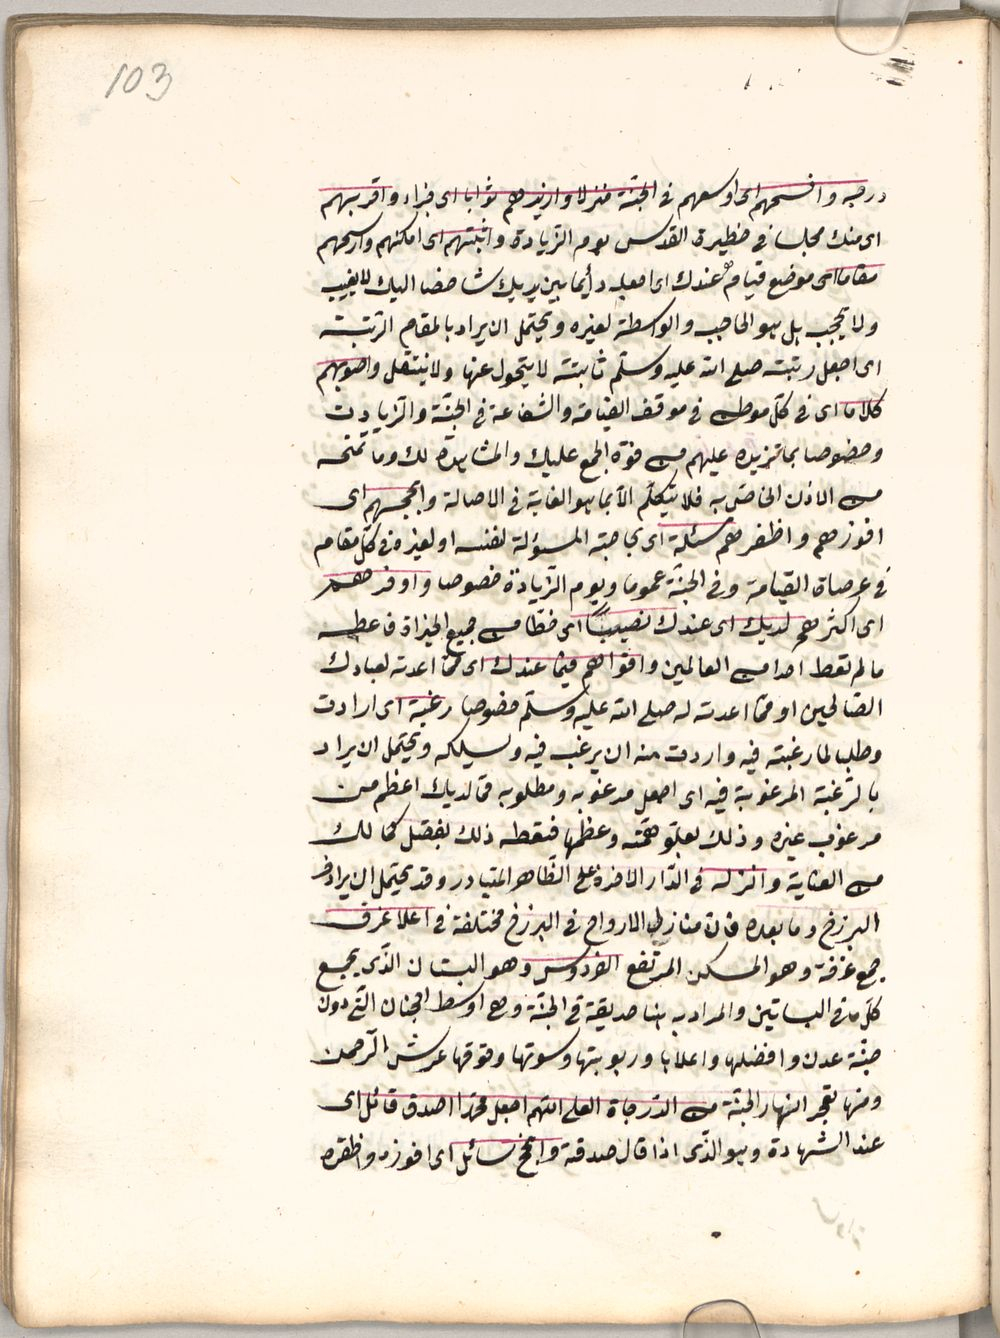 103
درجة وافسحهم اى اوسعهم فى الجنّة منزلا وازيدهم ثوابا اى جزاء واقربهم
اى منك مجلسا فى حظيرة القدس يوم الزيادة واثبتهم اى امكنهم وارسخهم
مقاما اى موضع قيام عندك اى اجعله دأيما بين يديك شاخصا اليك لا يغيب
ولا يحجب بل هو الحاجب والواسطة لغيره ويحتمل ان يراد بالمقام الرتبة
اى اجعل رتبته صلى الله عليه وسلّم ثابتة لا يتحول عنها ولا ينتقل واصوبهم
كلاما اى فى كلّ موطن فى موقف القيامة والشفاعة فى الجنّة والزيادت
وخصوصا بما تزيده عليهم من قوّة الجمع عليك والمشاهدة لك وما تمنحه
من الاذن الخاصّ به فلا يتكلّم الّا بما هو الغاية فى الاصالة وانجحهم اى
افوزهم واظفرهم مسئلة اى بحاجته المسؤلة لنفسه او لغيره فى كلّ مقام
فى عرصاة القيامة وفى الجنّة عموما ويوم الزيادة خصوصا واوفرهم
اى اكثرهم لديك اى عندك نصيبًا اى حظّا من جميع الجزاة فاعطه
مالم تعط احدا من العالمين واقواهم فيما عندك اى ممّا اعدته لعبادك
الصّالحين او ممّا اعدته له صلى الله عليه وسلّم خصوصا رغبة اى ارادت
وطلب لما رغبته فيه واردت منه ان يرغب فيه ويسلكه ويحتمل ان يراد
بالرّغبة المرغوبة فيه اى اجعل مرغوبه ومطلوبه ممّا لديك اعظم من
مرغوب غيره وذلك لعلوّ همّته وعظمها فتعطه ذلك بفضل كمالك
من العناية وانزله فى الدّار الاخرة على الظّاهر المتبادر وقد يحتمل ان يراد فى
البرزخ وما بعده فان منازل الارواح فى البرزخ مختلفة فى اعلا غرف
جمع غرفة وهو المسكن المرتفع الفردوس وهو البستان الذّى يجمع
كلّ ما فى البساتين والمراد به هنا حديقة فى الجنّة وهى اوسط الجنان التّى دون
جنّة عدن وافضلها واعلاها وربوبتها وسوتها وفوقها عرش الرّحمن
ومنها تفجر انهار الجنّة من الدّرجاة العلى اللهم اجعل محمّدا اصدق قائل اى
عند الشهادة وهو الذّى اذا قال صدقة وانجح سائل اى افوزه واظفره